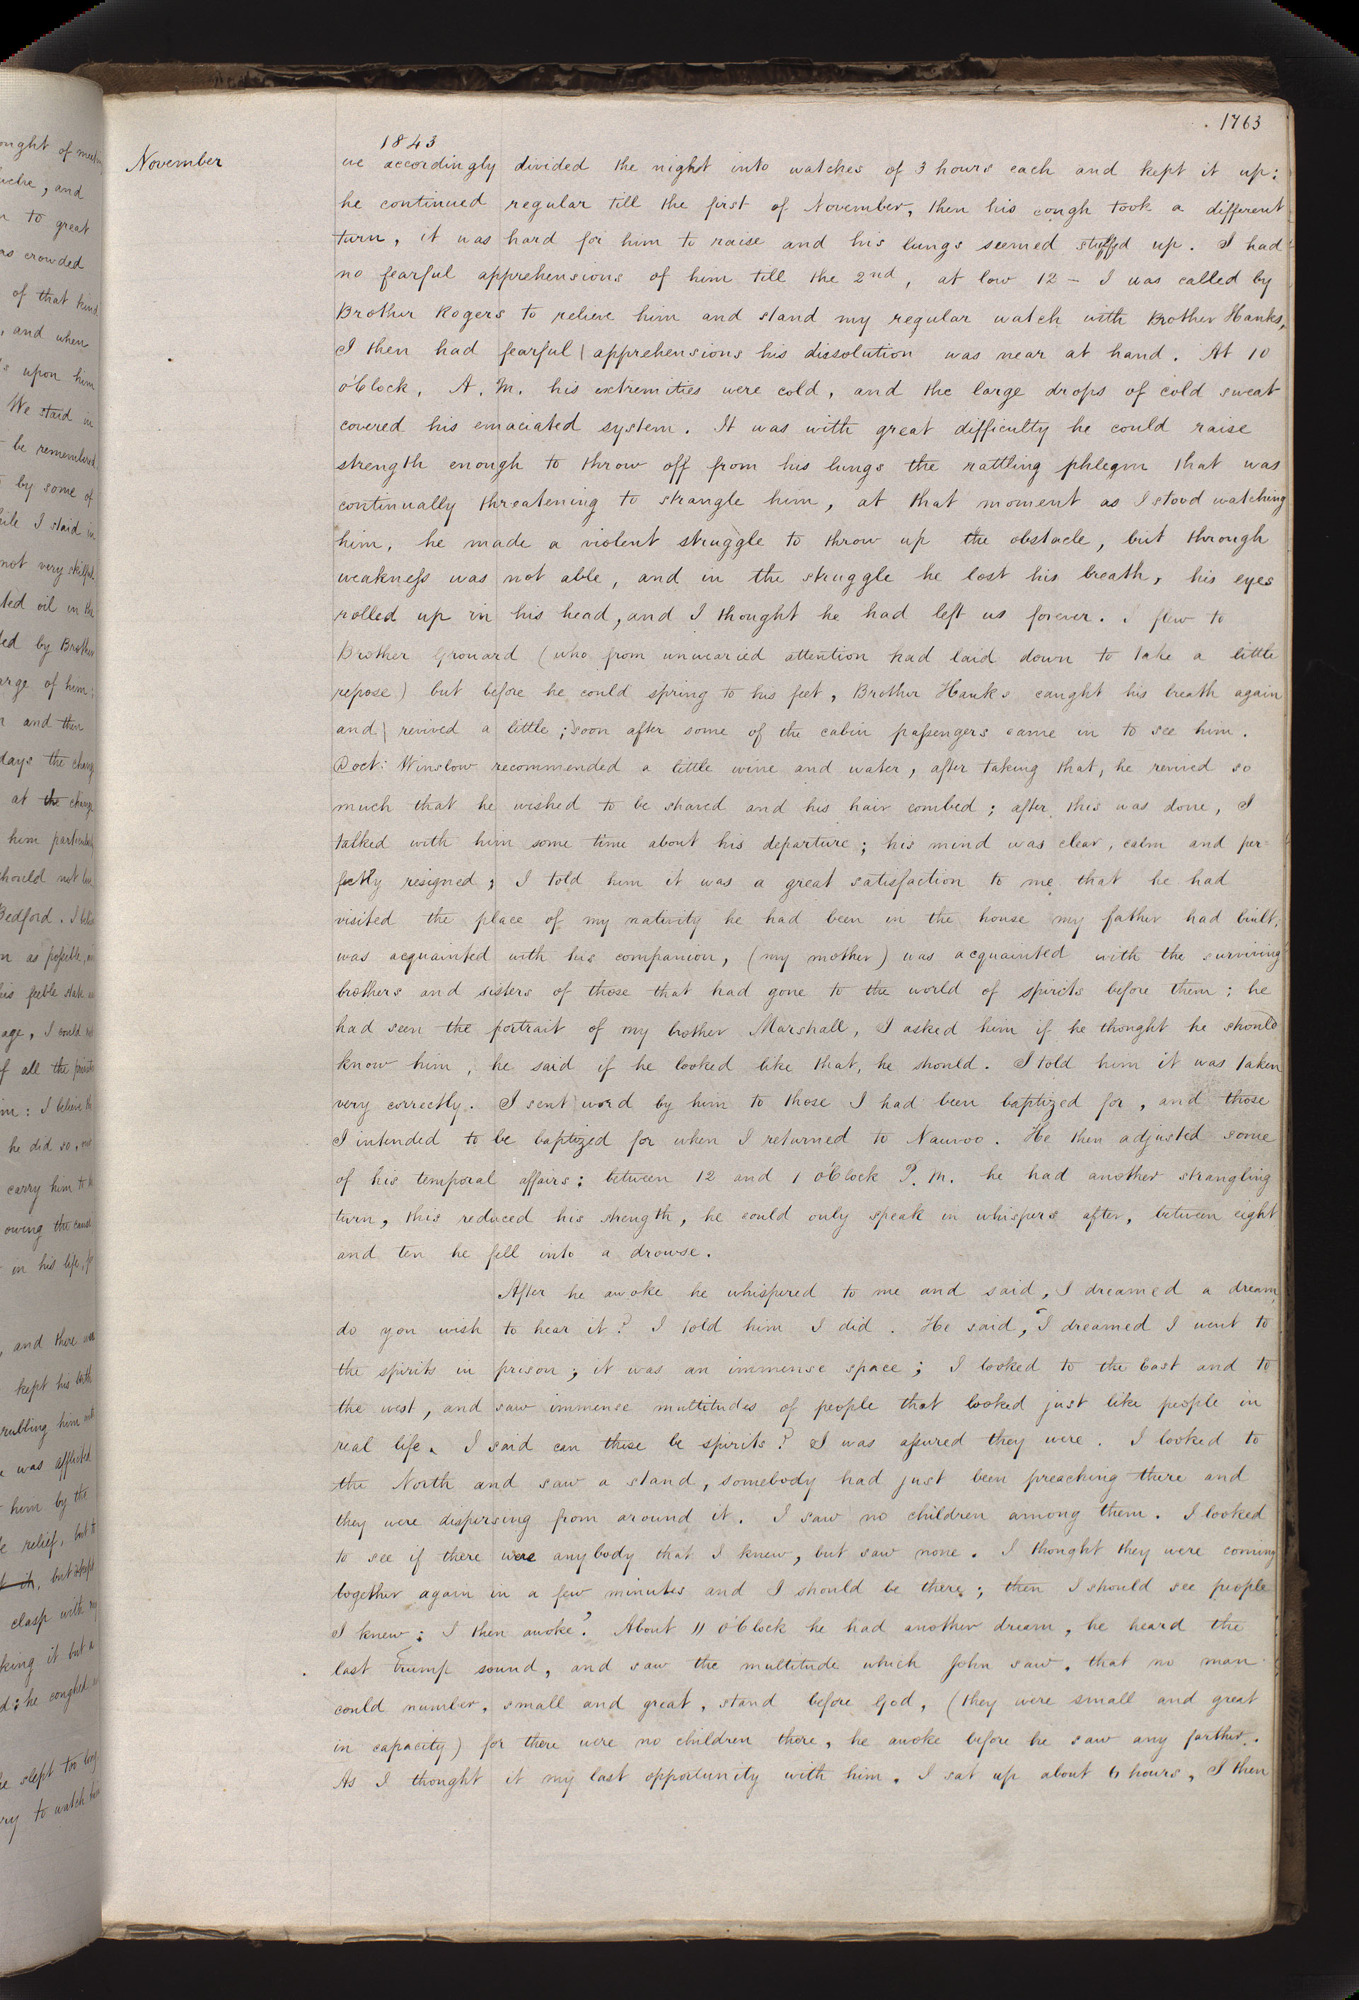 1763
1843
November
we accordingly divided the night into watches of 3 hours each and kept it up:
he continued regular till the first of November, then his cough took a different
turn, it was hard for him to raise and his lungs seemed stuffed up. I had
no fearful apprehensions of him till the 2nd, at low 12 – I was called by
Brother Rogers to relieve him and stand my regular watch with Brother Hanks,
I then had fearful apprehensions his dissolution was near at hand. At 10
o'Clock, A. M. his extremities were cold, and the large drops of cold sweat
covered his emaciated system. It was with great difficulty he could raise
strength enough to throw off from his lungs the rattling phlegm that was
continually threatening to strangle him, at that moment as I stood watching
him, he made a violent struggle to throw up the obstacle, but through
weakness was not able, and in the struggle he lost his breath, his eyes
rolled up in his head, and I thought he had left us forever. I flew to
Brother Grouard (who from unwearied attention had laid down to take a little
repose) but before he could spring to his feet, Brother Hanks caught his breath again
and revived a little; soon after some of the cabin passengers came in to see him.
Doct: Winslow recommended a little wine and water, after taking that, he revived so
much that he wished to be shaved and his hair combed; after this was done, I
talked with him some time about his departure; his mind was clear, calm and per-
fectly resigned; I told him it was a great satisfaction to me that he had
visited the place of my nativity he had been in the house my father had built,
was acquainted with his companion, (my mother) was acquainted with the surviving
brothers and sisters of those that had gone to the world of spirits before them; he
had seen the portrait of my brother Marshall, I asked him if he thought he should
know him, he said if he looked like that, he should. I told him it was taken
very correctly. I sent word by him to those I had been baptized for, and those
I intended to be baptized for when I returned to Nauvoo. He then adjusted some
of his temporal affairs: between 12 and 1 o'Clock P. M. he had another strangling
turn, this reduced his strength, he could only speak in whispers after, between eight
and ten he fell into a drowse.
After he awoke he whispered to me and said, I dreamed a dream,
do you wish to hear it? I told him I did. He said, "I dreamed I went to
the spirits in prison; it was an immense space; I looked to the East and to
the west, and saw immense multitudes of people that looked just like people in
real life. I said can these be spirits? I was assured they were. I looked to
the North and saw a stand, somebody had just been preaching there and
they were dispersing from around it. I saw no children among them. I looked
to see if there were anybody that I knew, but saw none. I thought they were coming
together again in a few minutes and I should be there; then I should see people
I knew: I then awoke". About 11 o'Clock he had another dream, he heard the
last trump sound, and saw the multitude which John saw, that no man
could number, small and great, stand before God, (they were small and great
in capacity) for there were no children there, he awoke before he saw any farther.
As I thought it my last opportunity with him, I sat up about 6 hours, I then